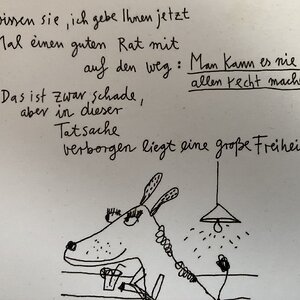 wissen sie, ich gebe Ihnen jetzt
Mal einen guten Rat mit
auf den weg: Man kann es nie
allen recht mach
Das ist zwar schade,
aber in dieser
Tatsache
verborgen liegt eine große Freihei